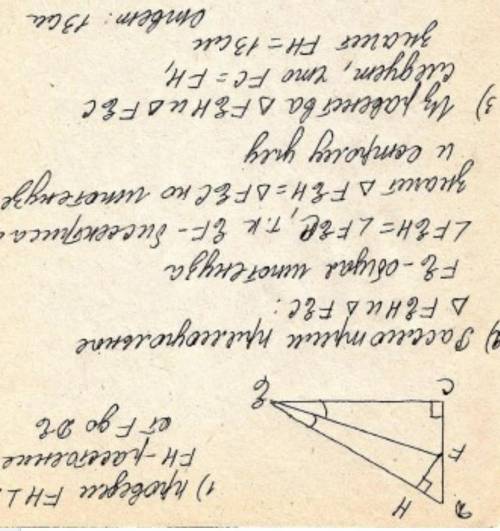 1) проведем FH⊥
FH - расстояние
от F до DE
D
H
F
C
E
2) Рассмотрим прямоугольные
△ FEH и △ FEC:
FE - общая гипотенуза
∠FEH = ∠FEC, т.к EF - биссектриса
значит △ FEH = △ FEC по гипотенузе
и острому углу
3) Из равенства △ FEH и △ FEC
следует, что FC = FH,
значит FH = 13см
Ответ: 13см